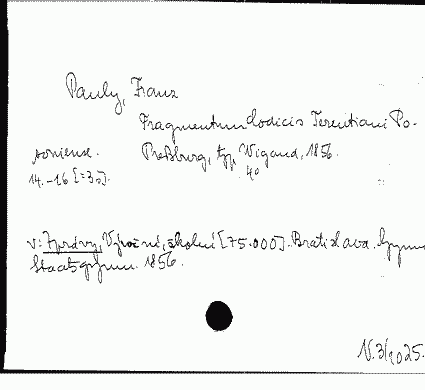 Pauly, Franz
Fragmentum Codicis Terentiani Po-
soniense. Preßburg, typ. Wigand, 1856.
14.-16 [=3 s]. 4°
v: Zprávy, Výroční, školní [75.000]. Bratislava. Gymn
Staatsgymn. 1856.
N.3/2025.